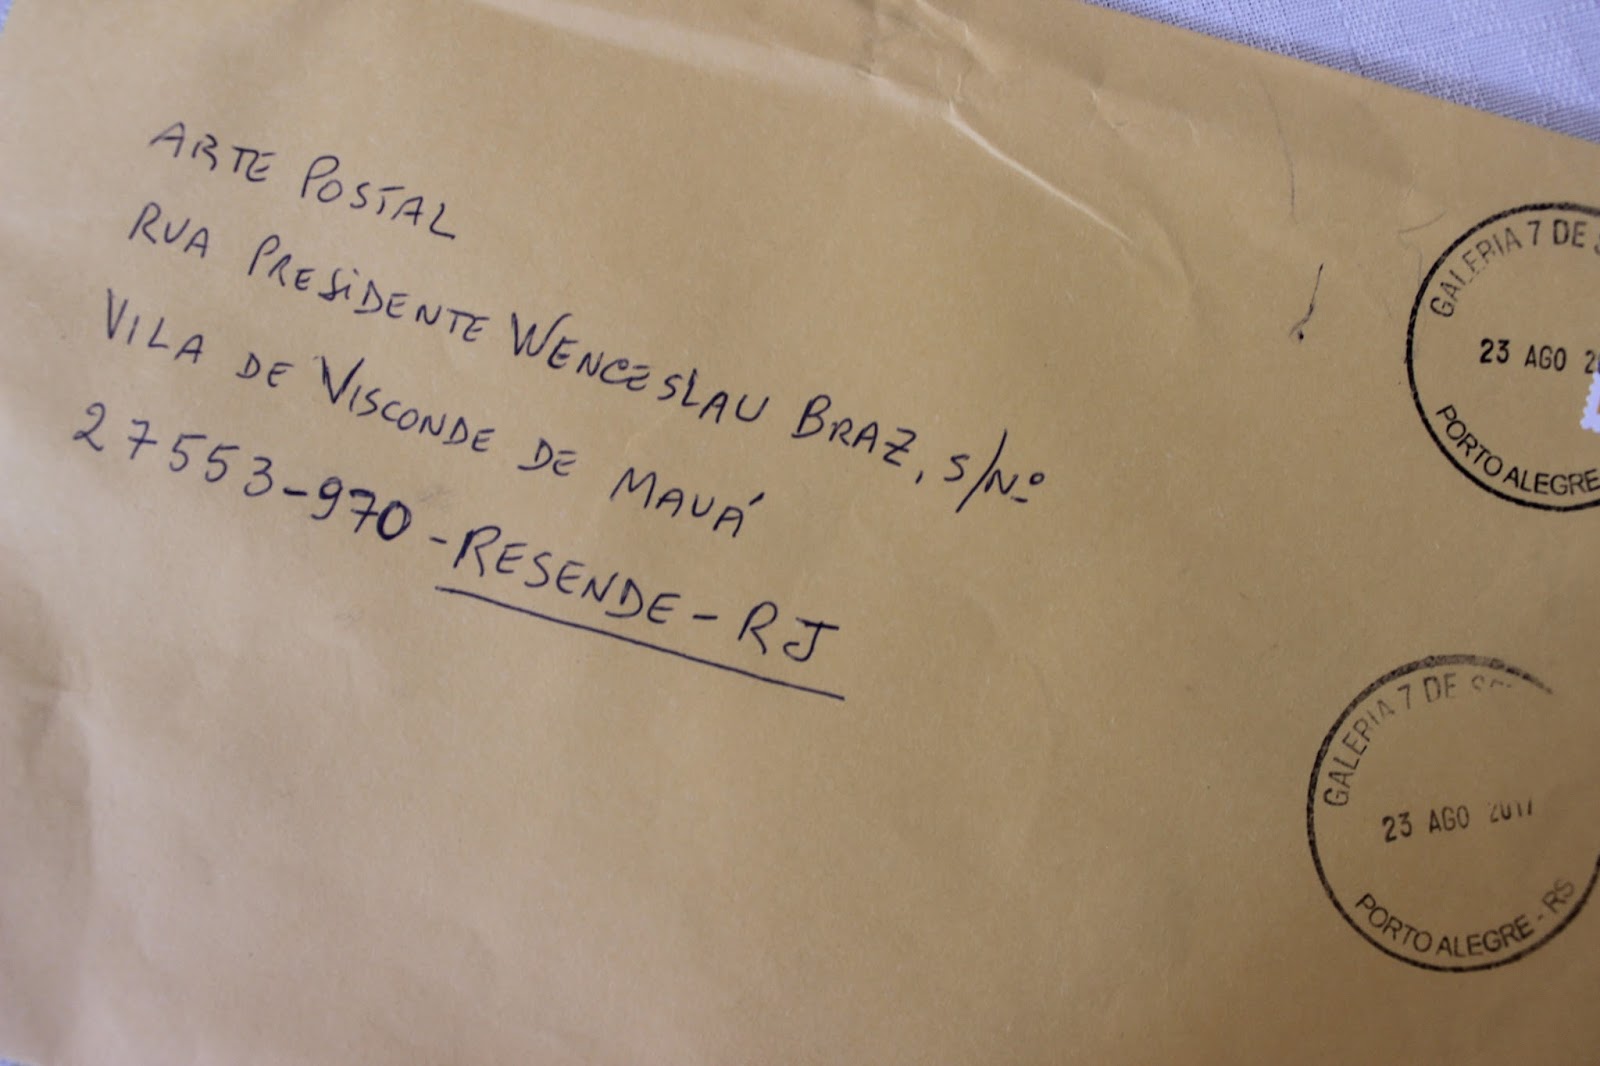 ARTE POSTAL
RUA PRESIDENTE WENCESLAU BRAZ, S/Nº
VILA DE VISCONDE DE MAUÁ
27553-970-RESENDE-RJ
GALERIA 7 DE
23 AGO
PORTO ALEGRE
GALERIA 7 DE
23 AGO 2017
PORTO ALEGRE - RS